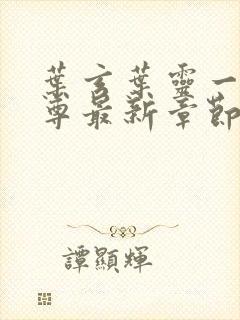 葉言葉靈一
尊最新章節
譚顯輝